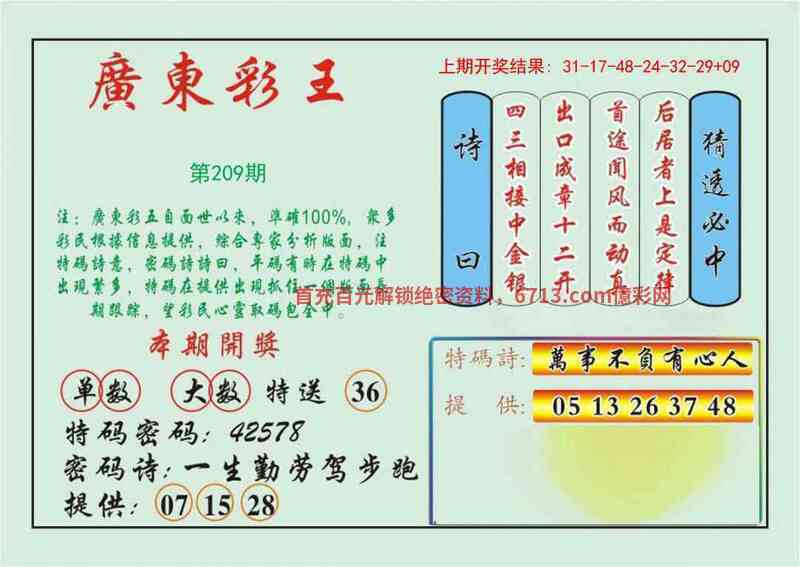 廣東彩王
第209期
注：廣東彩五自面世以来，準確100%，衆多
彩民根據信息提供，綜合專家分析版面，注
特碼詩意，密碼詩詩曰，平碼有時在特碼中
出現繁多，特碼在提供出現抓住一個版面長
期跟踪，望彩民心靈取碼包全中。
首充百元解锁绝密资料，6713.com億彩网
本期開獎
单数 大数 特送 36
特码密码：42578
密码诗：一生勤劳驾步跑
提供：07 15 28
上期开奖结果：31-17-48-24-32-29+09
诗曰
四三相接中金银
出口成章十二开
首途闻风而动真
后居者上是定律
猜透必中
特碼詩：萬事不负有心人
提供：05 13 26 37 48